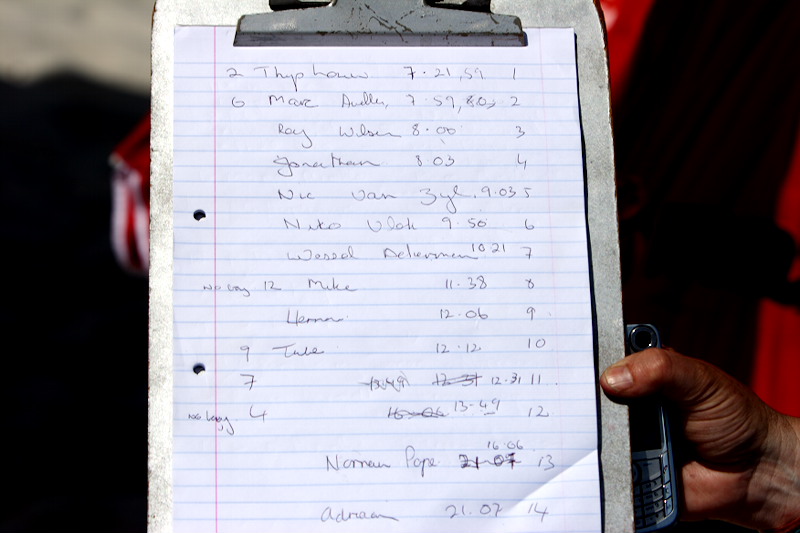 2 7.21,59 1
6 Marc 7.59, 2
Roy Wilson 8.00 3
Jonathan 8.03 4
Nic Van Zyl. 9.03 5
Niko Vlok 9.50 6
Wessel Ackerman 10 21 7
12 Mike 11.38 8
Herman 12.06 9
9 12.12 10
7 12.31 12.31 11
4 16-06 13-49 12
Norman Pope 21 07 16.06 13
Adriaan 21.07 14